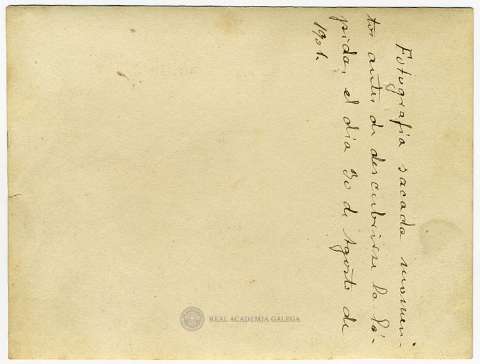 Fotografia sacada momen-
tos antes de descubrirse la lá-
pida, el dia 30 de Agosto de
1904.
REAL ACADEMIA GALEGA